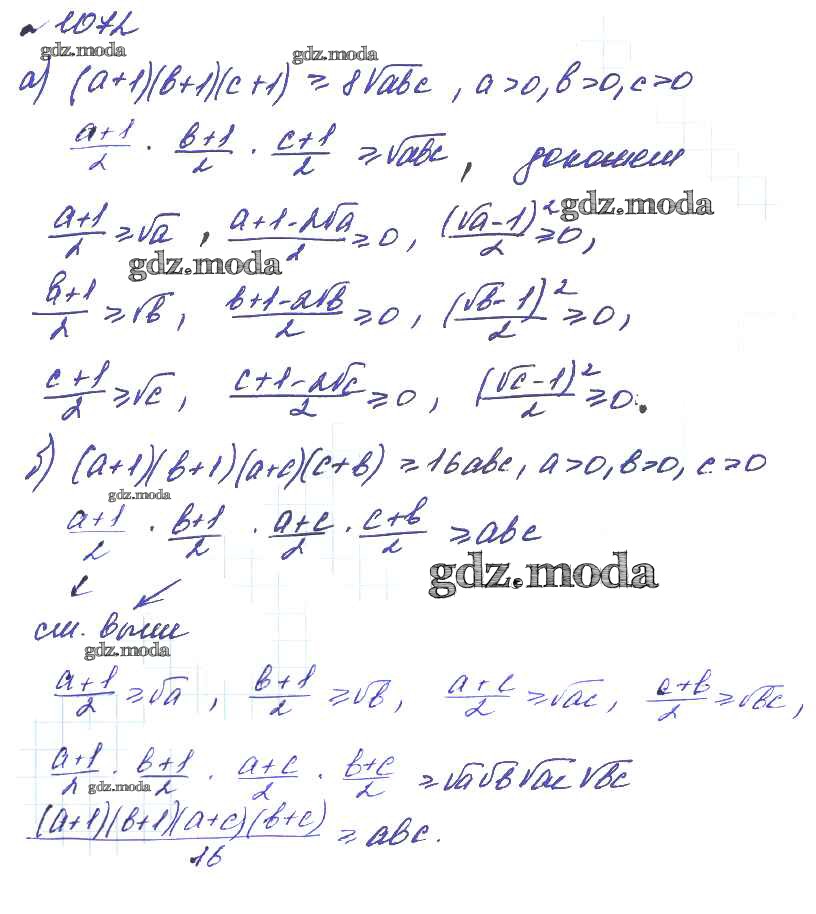 №1072
gdz.moda gdz.moda
а) (a+1)(b+1)(c+1) ≥ 8√abc, a>0, b>0, c>0
(a+1)/2 · (b+1)/2 · (c+1)/2 ≥ √abc, докажем
(a+1)/2 ≥ √a, (a+1-2√a)/2 ≥ 0, (√a-1)²/2 ≥ 0,
gdz.moda
gdz.moda
(b+1)/2 ≥ √b, (b+1-2√b)/2 ≥ 0, (√b-1)²/2 ≥ 0,
(c+1)/2 ≥ √c, (c+1-2√c)/2 ≥ 0, (√c-1)²/2 ≥ 0.
б) (a+1)(b+1)(a+c)(c+b) ≥ 16abc, a>0, b>0, c>0
gdz.moda
(a+1)/2 · (b+1)/2 · (a+c)/2 · (c+b)/2 ≥ abc
gdz.moda
см. выше
gdz.moda
(a+1)/2 ≥ √a, (b+1)/2 ≥ √b, (a+c)/2 ≥ √ac, (c+b)/2 ≥ √bc,
(a+1)/2 · (b+1)/2 · (a+c)/2 · (b+c)/2 ≥ √a√b√ac√bc
gdz.moda
(a+1)(b+1)(a+c)(b+c)/16 ≥ abc.